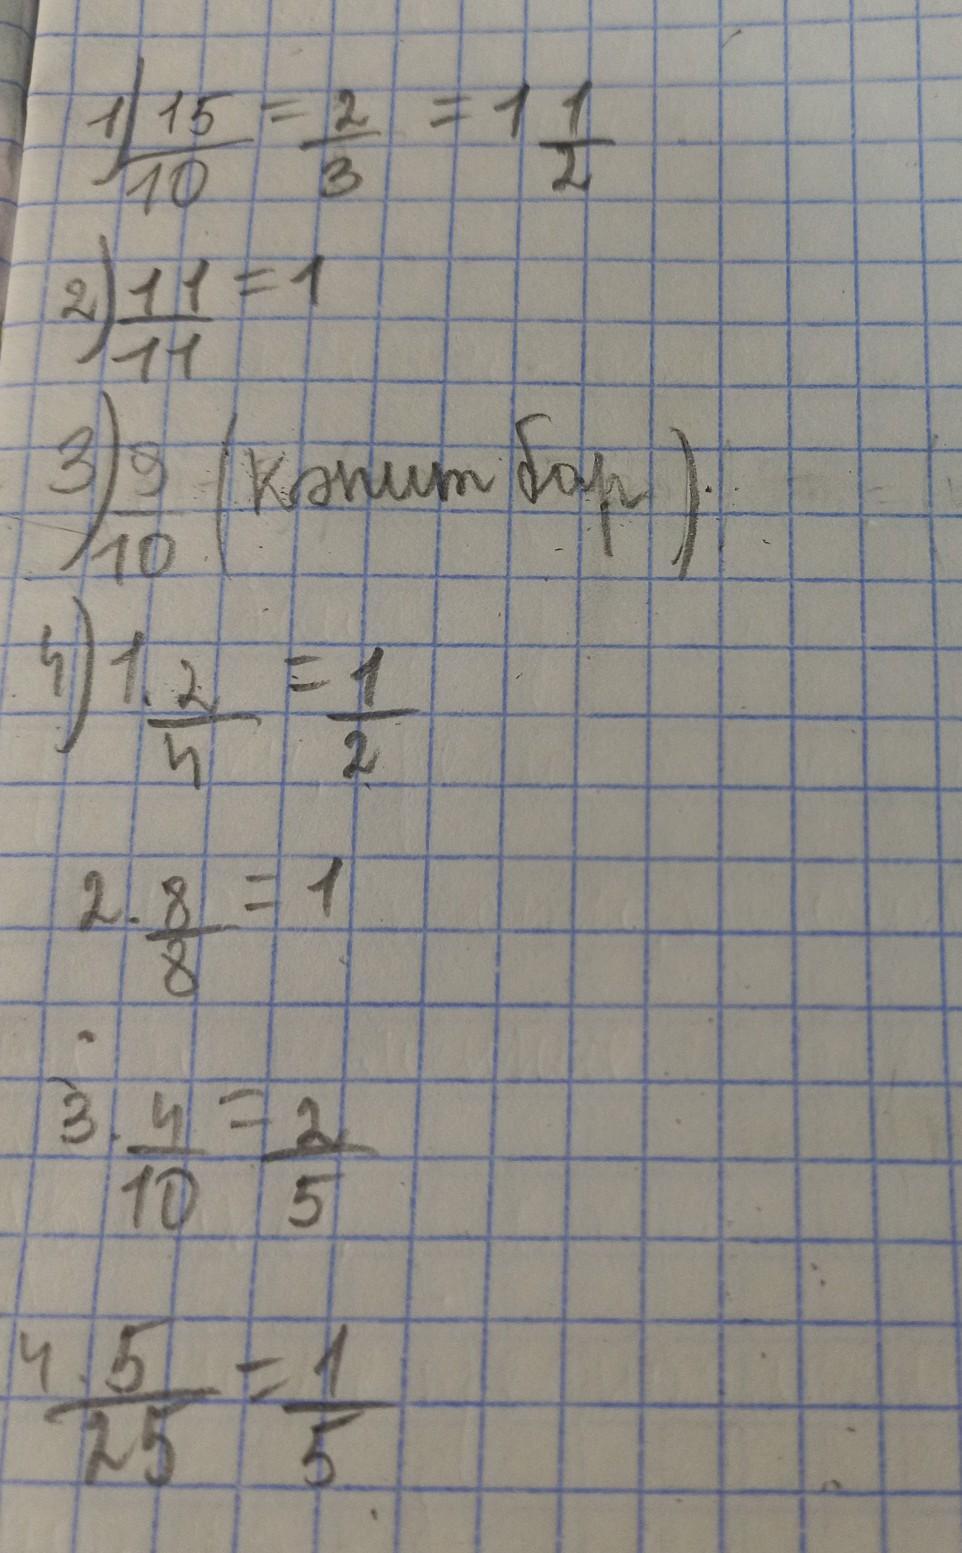 1) 15/10 = 2/3 = 1 1/2
2) 11/11 = 1
3) 9/10 (кэпит бар).
4) 1. 2/4 = 1/2
2. 8/8 = 1
3. 4/10 = 2/5
4. 5/25 = 1/5